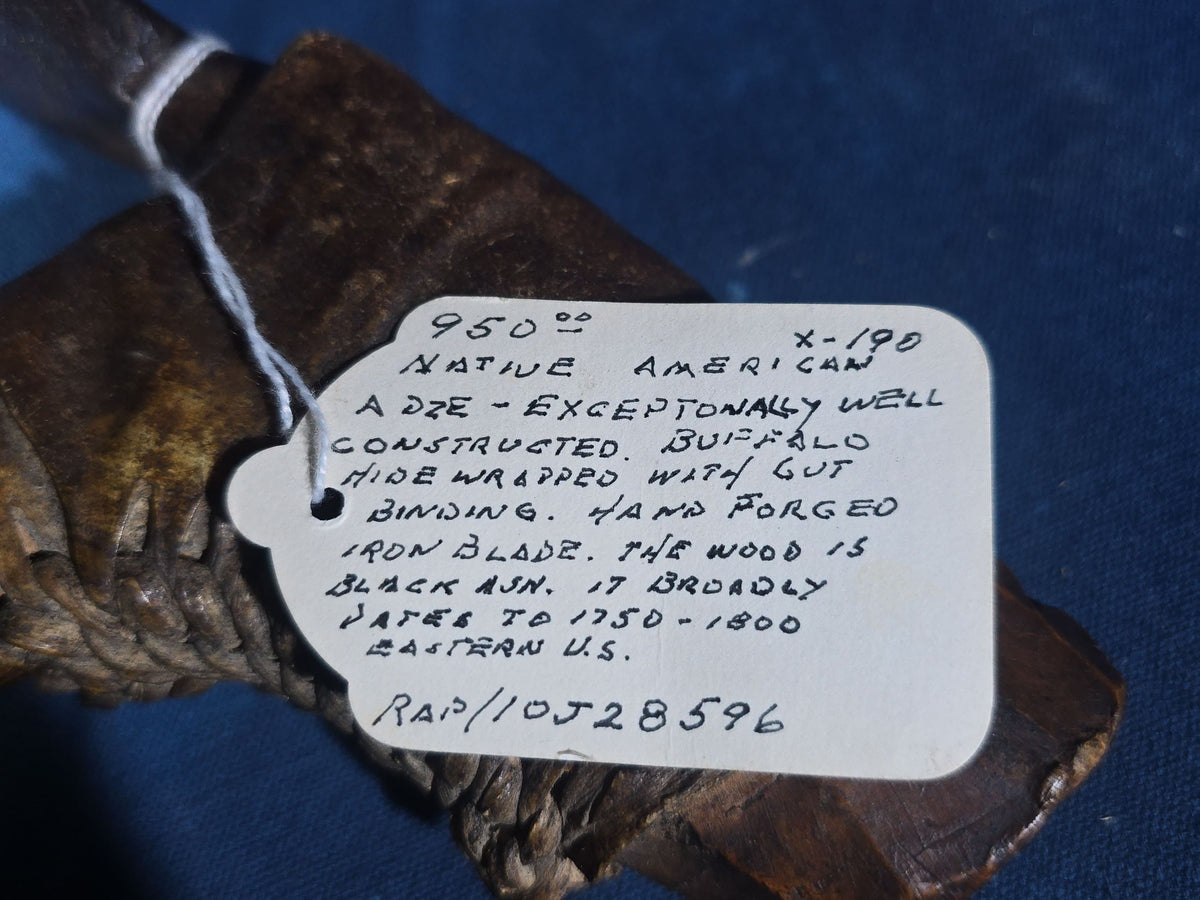 950 00 X-190
NATIVE AMERICAN
ADZE - EXCEPTONALLY WELL
CONSTRUCTED. BUFFALO
HIDE WRAPPED WITH GUT
BINDING. HAND FORGED
IRON BLADE. THE WOOD IS
BLACK ASH. IT BROADLY
DATES TO 1750-1800
EASTERN U.S.
RAP/10J28596